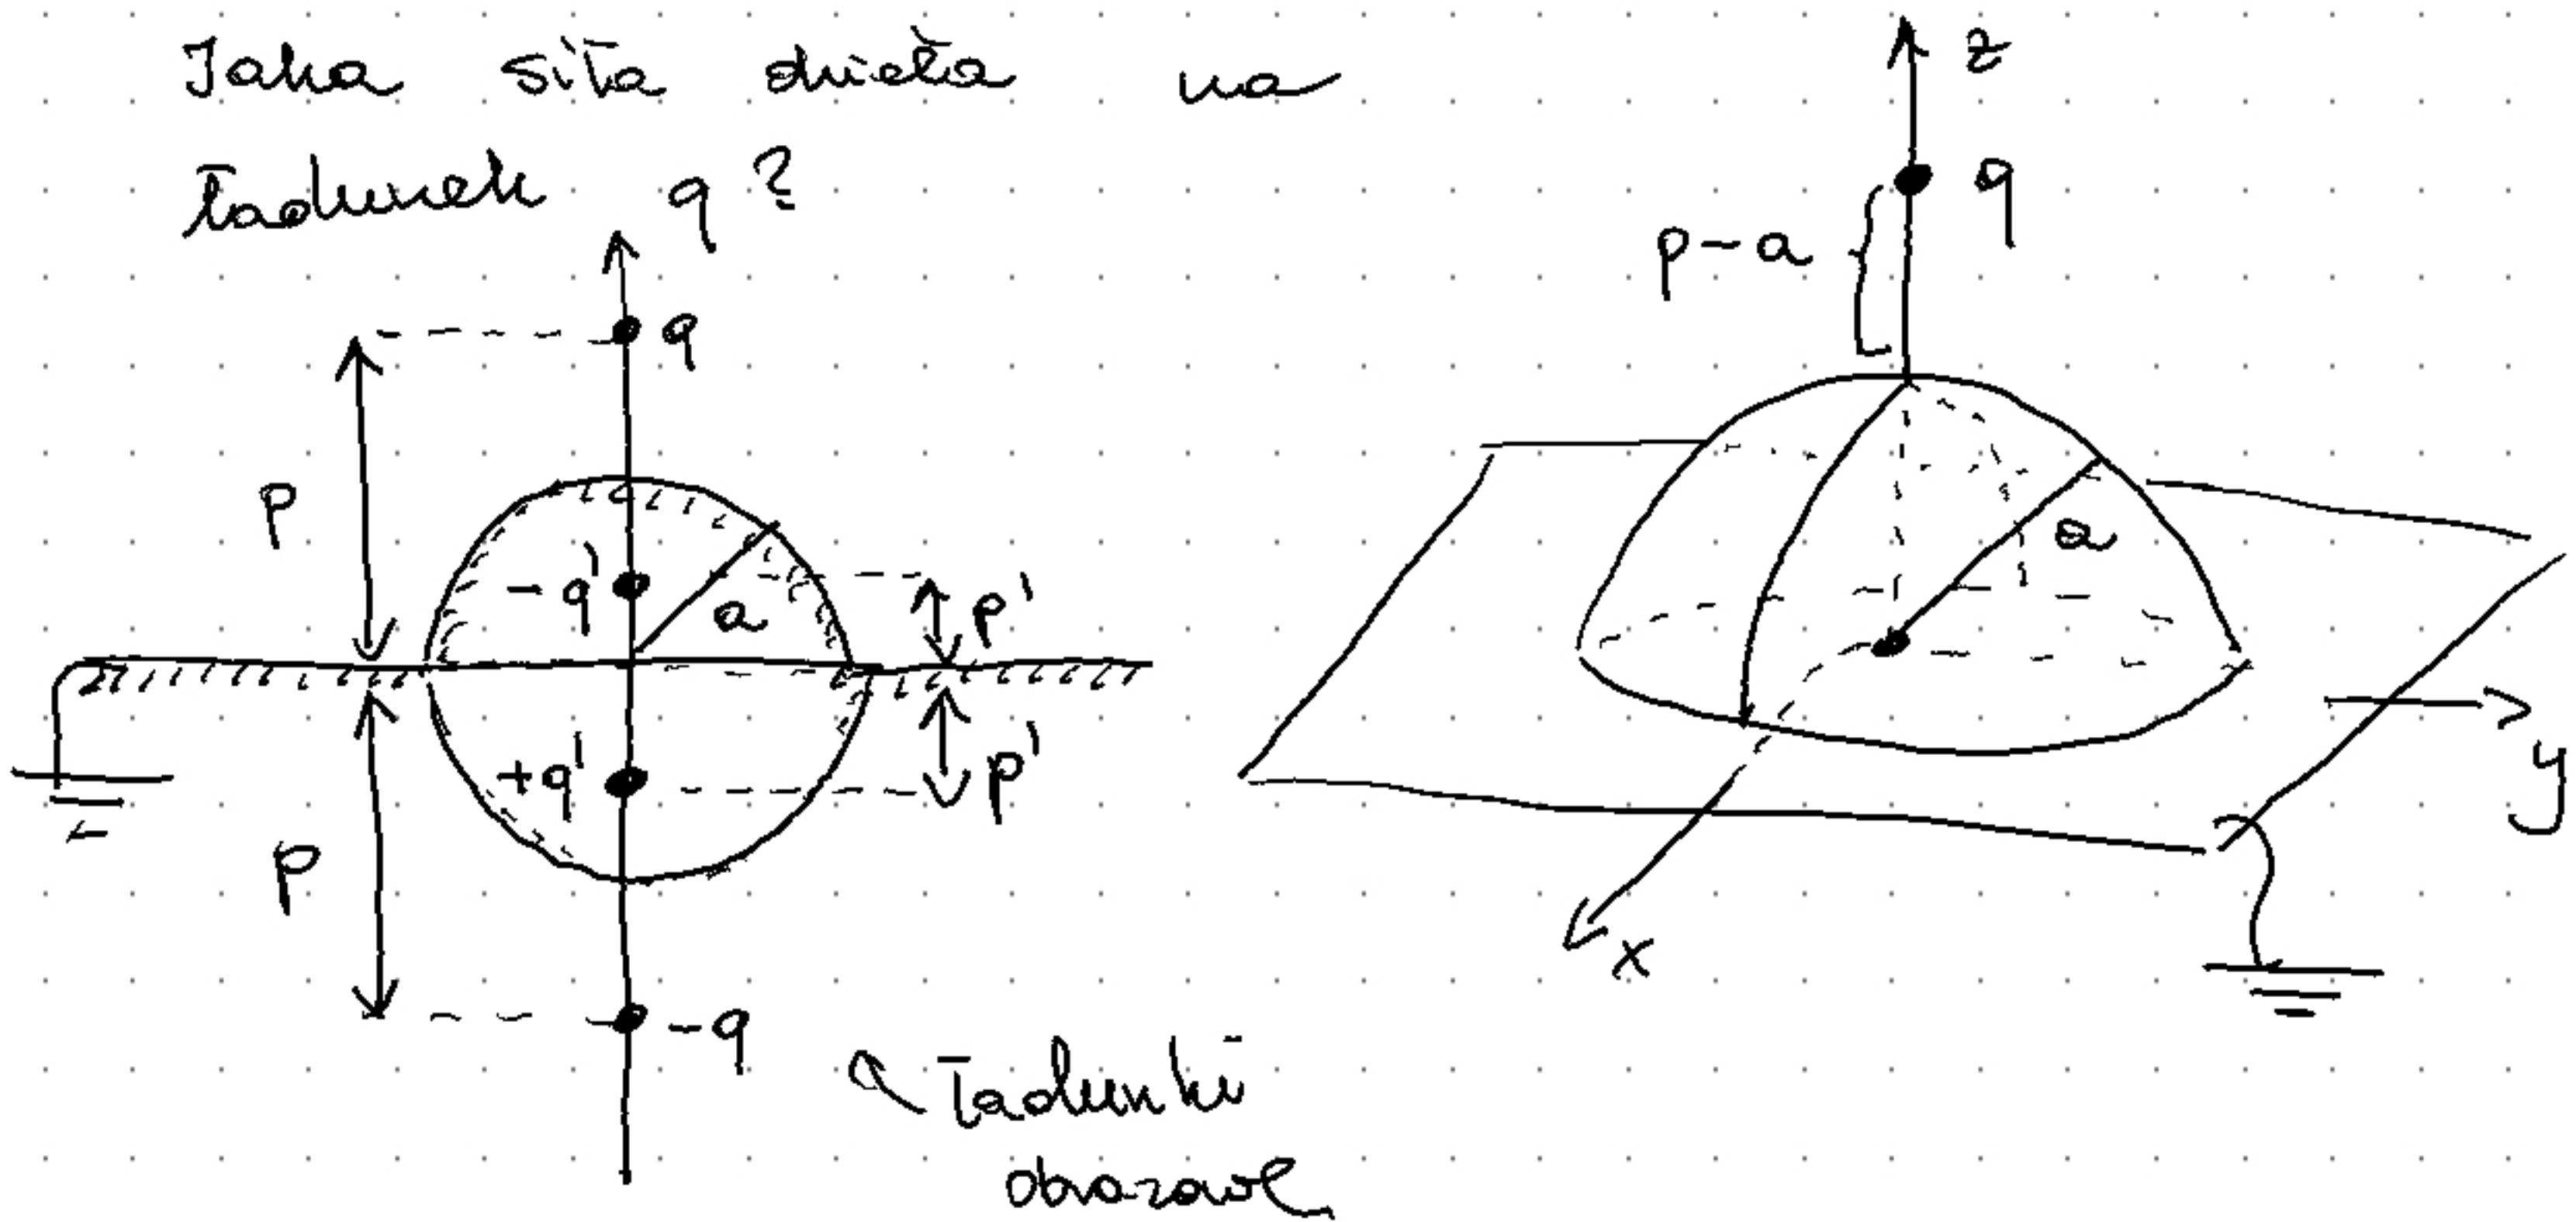 Jaka siła działa na
ładunek q?
q
p
-q'
a
p'
+q'
p'
p
-q
ładunki
obrazowe
z
q
p-a
a
y
x